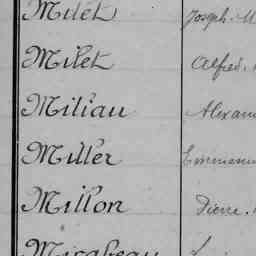 Milet Joseph. M
Milet Alfred.
Miliau Alexan
Miller Emmanu
Millon Pierre.
Mirabeau